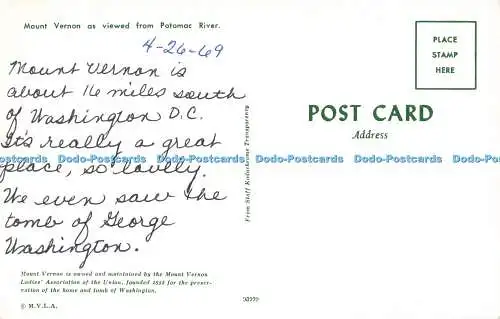 Mount Vernon as viewed from Potomac River.
4-26-69
Mount Vernon is
about 16 miles south
of Washington D.C.
It's really a great
place, so lovely.
We even saw the
tomb of George
Washington.
Mount Vernon is owned and maintained by the Mount Vernon
Ladies' Association of the Union, founded 1853 for the preser-
vation of the home and tomb of Washington.
© M.V.L.A.
From Staff Kodachrome Transparency
PLACE
STAMP
HERE
POST CARD
Address
Dodo-Postcards Dodo-Postcards Dodo-Postcards Dodo-Postcards Dodo-Postcards